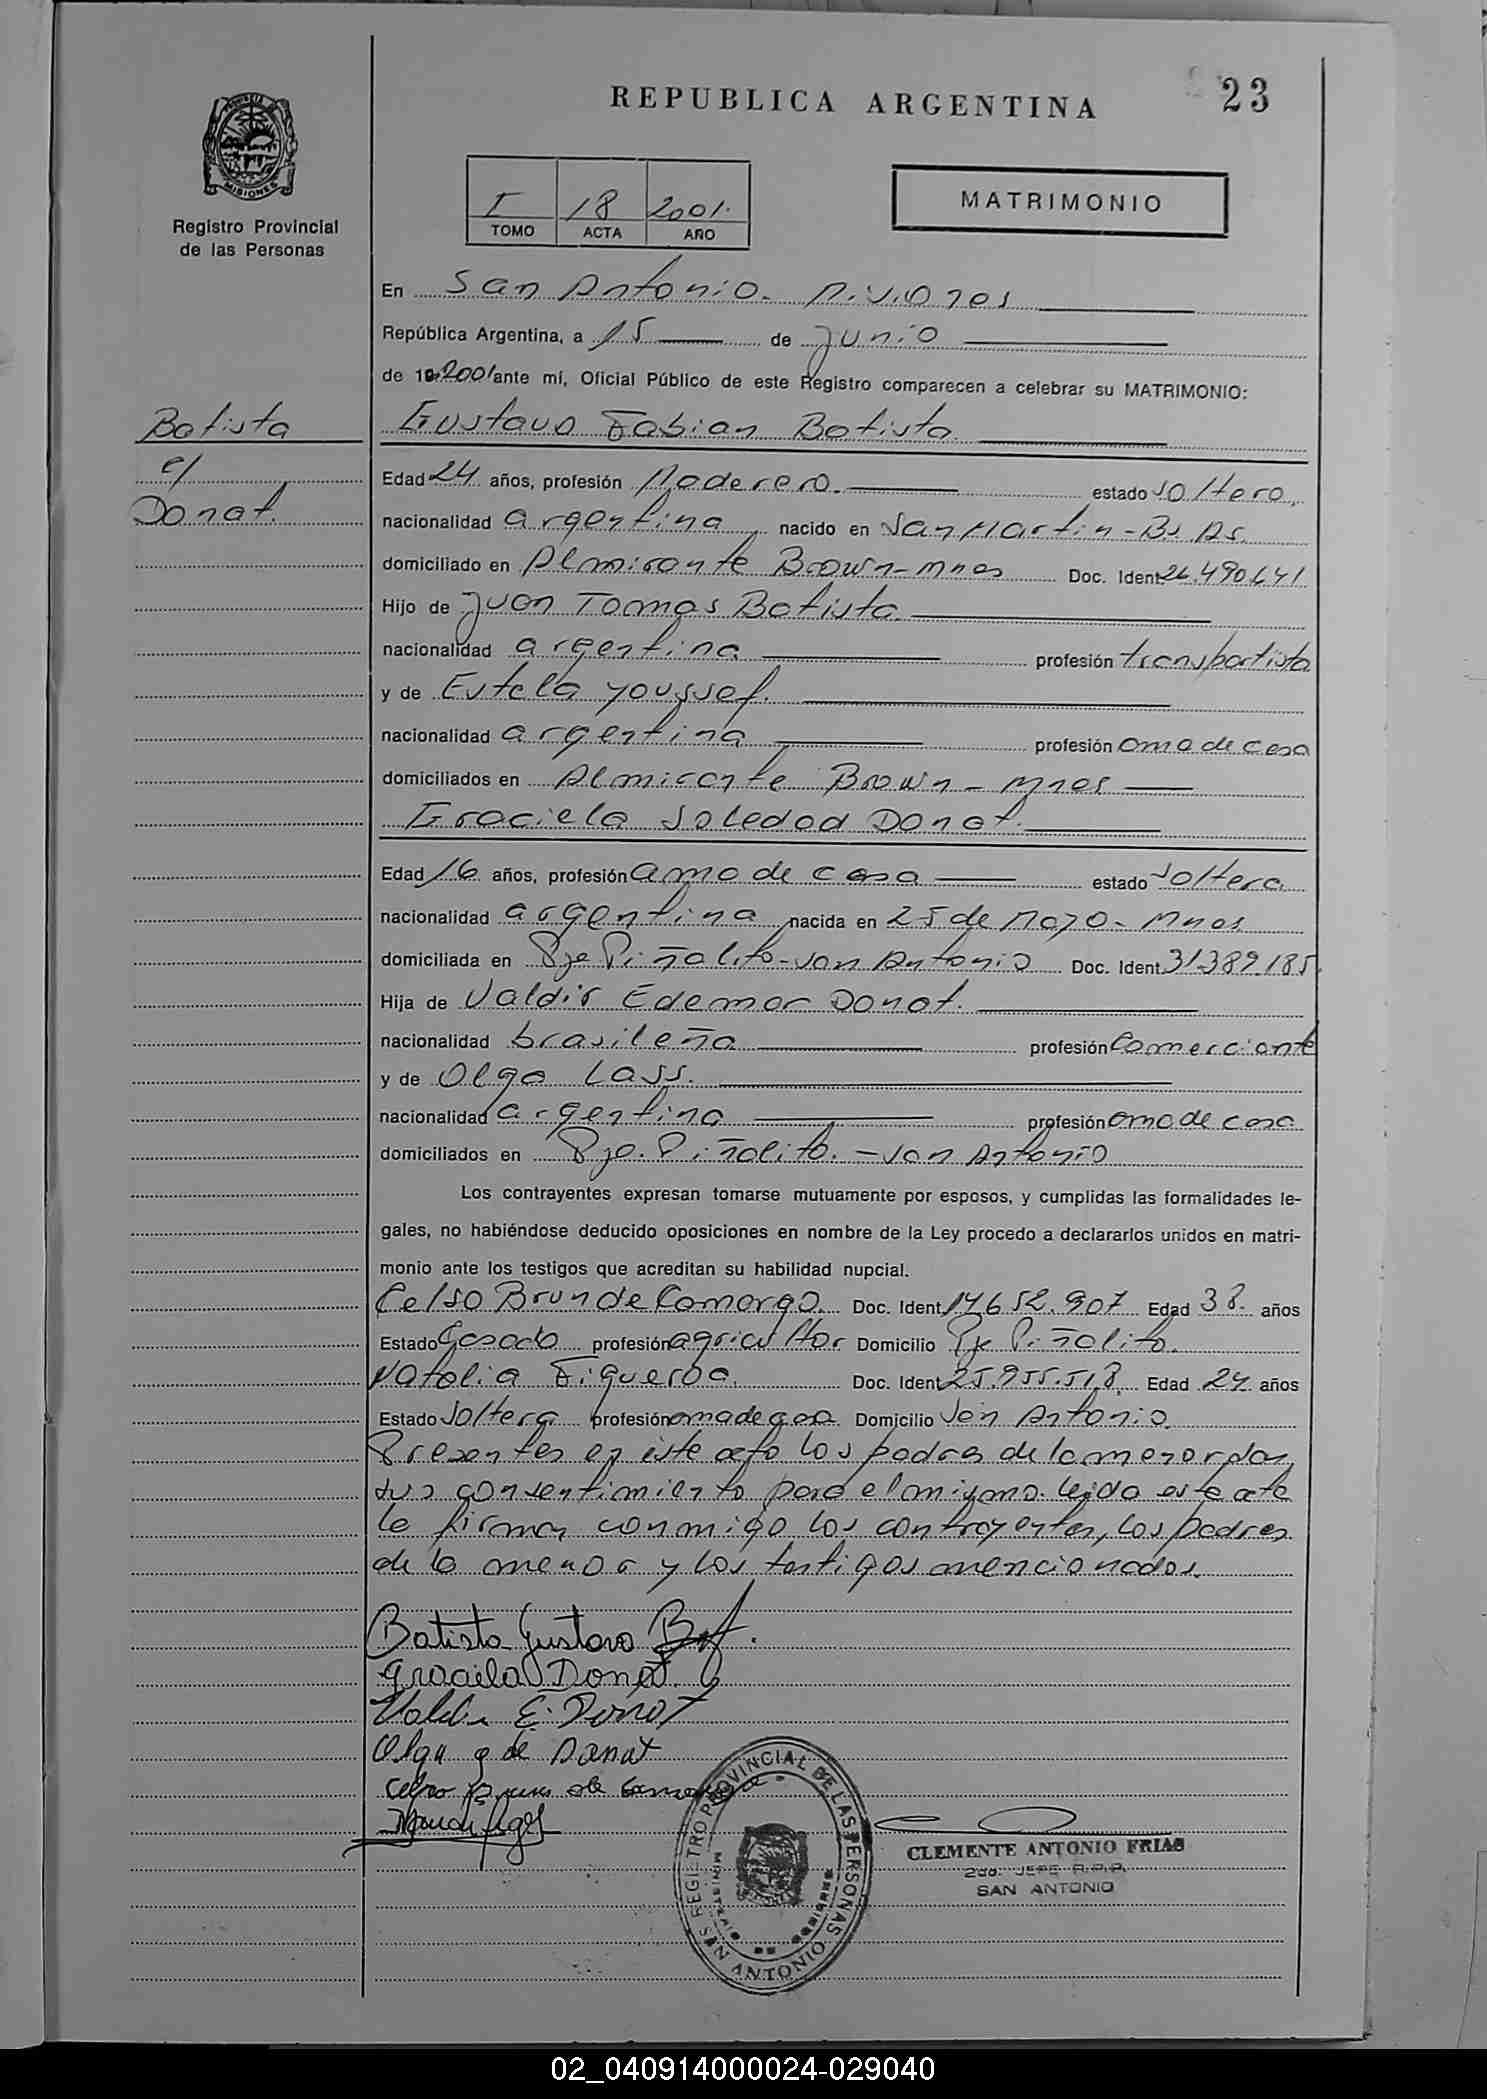 REPUBLICA ARGENTINA
23
MISIONES
Registro Provincial
de las Personas
I 18 2001.
TOMO ACTA AÑO
MATRIMONIO
En San Antonio. Misiones
República Argentina, a 15 de Junio
de 19 2001 ante mí, Oficial Público de este Registro comparecen a celebrar su MATRIMONIO:
Batista
c/
Donat.
Gustavo Fabian Batista
Edad 24 años, profesión Maderero. estado soltero,
nacionalidad argentina nacido en San Martin - Bs. As.
domiciliado en Almirante Brown - Mnes Doc. Ident. 26.490.641
Hijo de Juan Tomas Batista.
nacionalidad argentina profesión transportista
y de Estela Youssef.
nacionalidad argentina profesión ama de casa
domiciliados en Almirante Brown - Mnes
Graciela Soledad Donat.
Edad 16 años, profesión ama de casa estado soltera
nacionalidad argentina nacida en 25 de Mayo - Mnes
domiciliada en Pje Piñalito - San Antonio Doc. Ident. 31389.185
Hija de Valdir Edemar Donat.
nacionalidad brasileña profesión Comerciante
y de Olga Lass.
nacionalidad argentina profesión ama de casa
domiciliados en Pje. Piñalito. - San Antonio
Los contrayentes expresan tomarse mutuamente por esposos, y cumplidas las formalidades le-
gales, no habiéndose deducido oposiciones en nombre de la Ley procedo a declararlos unidos en matri-
monio ante los testigos que acreditan su habilidad nupcial.
Celso Brun de Camargo. Doc. Ident. 17.652.907 Edad 38. años
Estado Casado profesión agricultor Domicilio Pje Piñalito.
Natalia Figueroa. Doc. Ident. 25.955.518. Edad 24 años
Estado soltera profesión ama de casa Domicilio San Antonio.
Presentes en este acto los padres de la menor dan
sus consentimiento para el mismo. Leida este acta
la firman conmigo los contrayentes, los padres
de la menor y los testigos mencionados.
Batista Gustavo
Graciela Donat.
Valdir E. Donat
Olga de Donat
Celso Brun de Camargo
REGISTRO PROVINCIAL DE LAS PERSONAS
SAN ANTONIO
CLEMENTE ANTONIO FRIAS
2do. JEFE R.P.P.
SAN ANTONIO
02_040914000024-029040